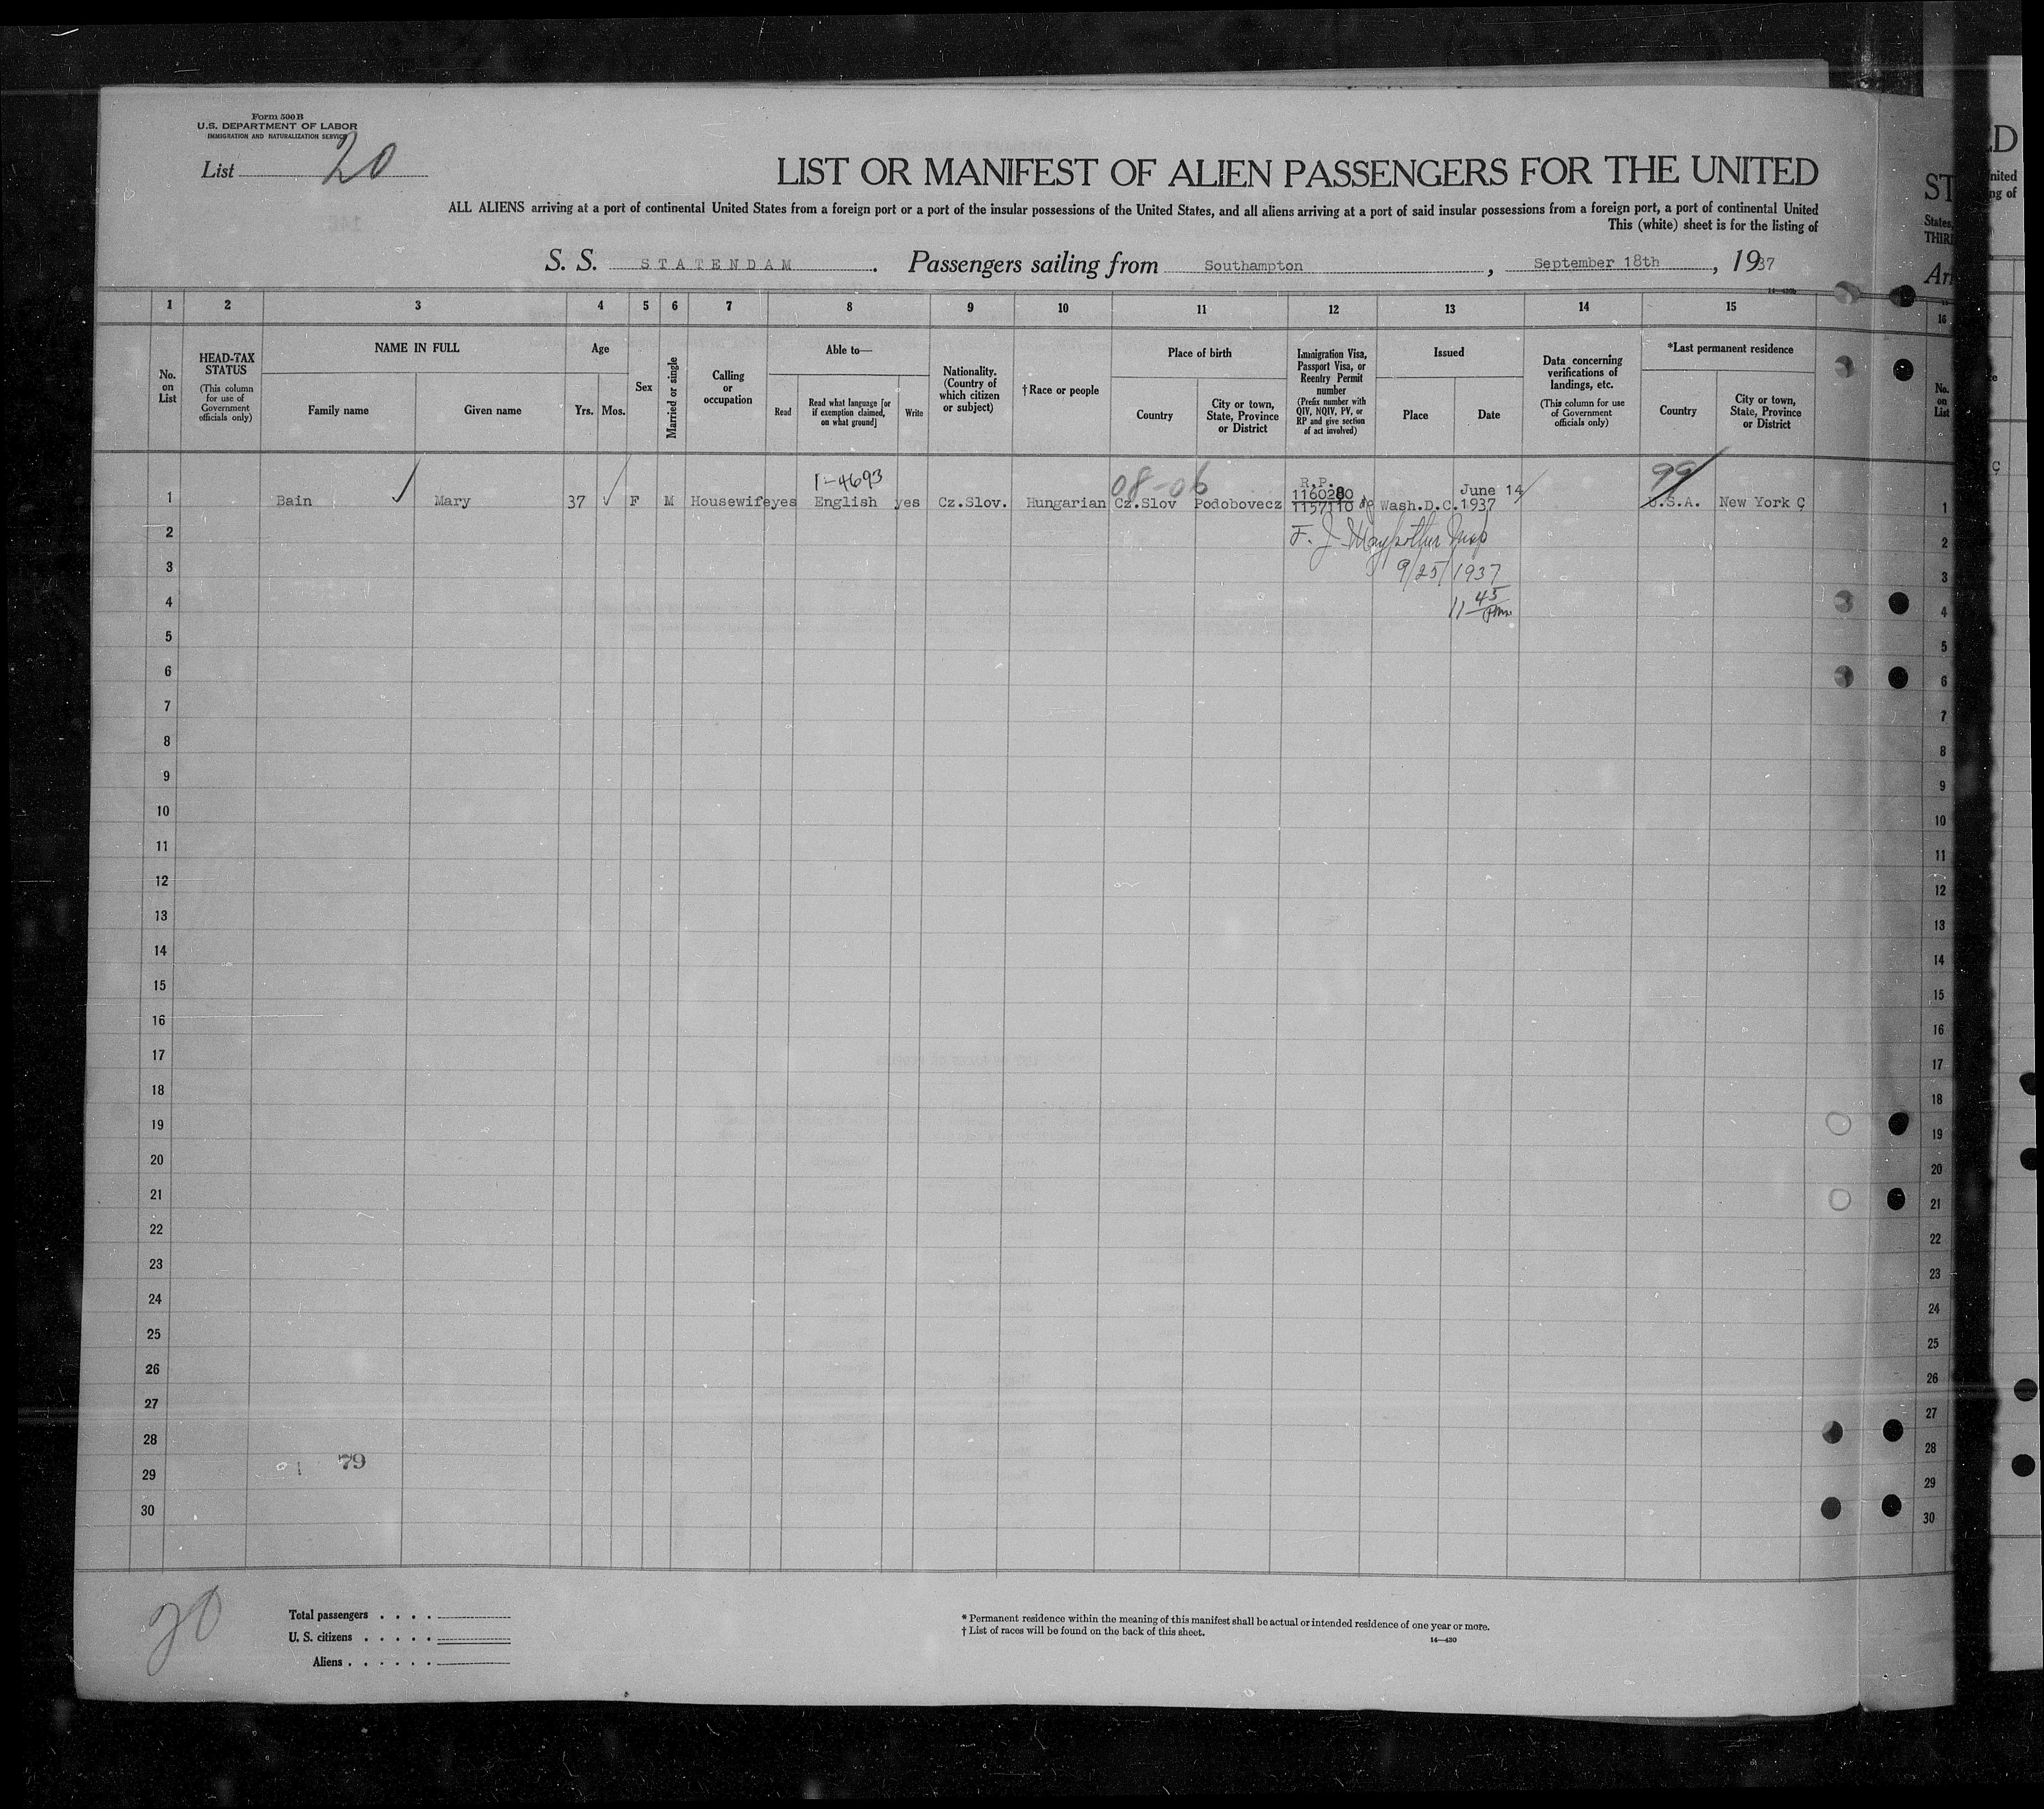 Form 500 B
U.S. DEPARTMENT OF LABOR
IMMIGRATION AND NATURALIZATION SERVICE
List 20
LIST OR MANIFEST OF ALIEN PASSENGERS FOR THE UNITED
ALL ALIENS arriving at a port of continental United States from a foreign port or a port of the insular possessions of the United States, and all aliens arriving at a port of said insular possessions from a foreign port, a port of continental United
This (white) sheet is for the listing of
S. S. STATENDAM. Passengers sailing from Southampton, September 18th, 1937
14—430b
1 2 3 4 5 6 7 8 9 10 11 12 13 14 15
No. on List
HEAD-TAX STATUS
(This column for use of Government officials only)
NAME IN FULL
Family name
Given name
Age
Yrs. Mos.
Sex
Married or single
Calling or occupation
Able to—
Read
Read what language [or if exemption claimed, on what ground]
Write
Nationality. (Country of which citizen or subject)
†Race or people
Place of birth
Country
City or town, State, Province or District
Immigration Visa, Passport Visa, or Reentry Permit number
(Prefix number with QIV, NQIV, PV, or RP and give section of act involved)
Issued
Place
Date
Data concerning verifications of landings, etc.
(This column for use of Government officials only)
*Last permanent residence
Country
City or town, State, Province or District
1-4693
08-06
R.P.
1160280
June 14
99
1 Bain Mary 37 F M Housewife yes English yes Cz.Slov. Hungarian Cz.Slov Podobovecz 1157110 Wash.D.C. 1937 U.S.A. New York Ç
2 F. J.
3 9/25/1937
4 11 45 pm
5
6
7
8
9
10
11
12
13
14
15
16
17
18
19
20
21
22
23
24
25
26
27
28
79
29
30
20
Total passengers
U. S. citizens
Aliens
* Permanent residence within the meaning of this manifest shall be actual or intended residence of one year or more.
† List of races will be found on the back of this sheet.
14—430
ST
States,
THIRD
Ar
16
No. on List
1
2
3
4
5
6
7
8
9
10
11
12
13
14
15
16
17
18
19
20
21
22
23
24
25
26
27
28
29
30
ED
nited
ng of